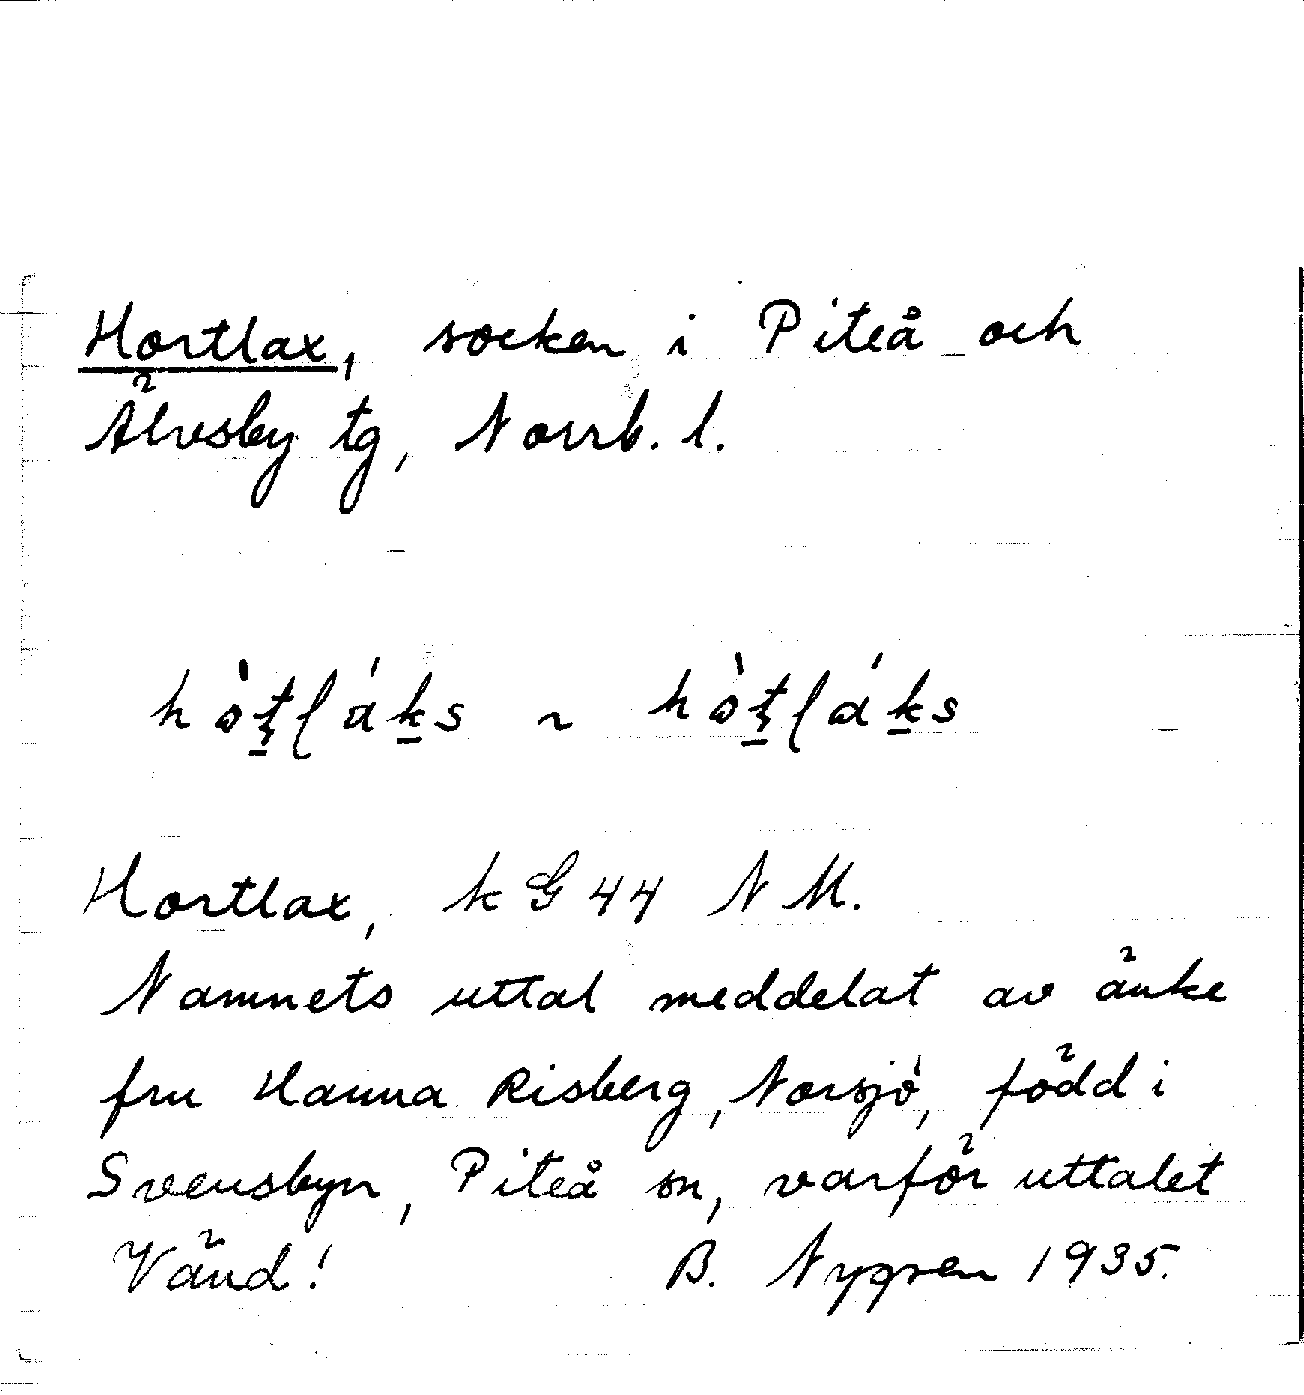 Hortlax, socken i Piteå och
Älvsby tg, Norrb. l.
hòţláks ~ hòţláks
Hortlax, k G 44 N M.
Namnets uttal meddelat av änke
fru Hanna Risberg, Norsjö, född i
Svensbyn, Piteå sn, varför uttalet
Vänd! B. Nygren 1935.